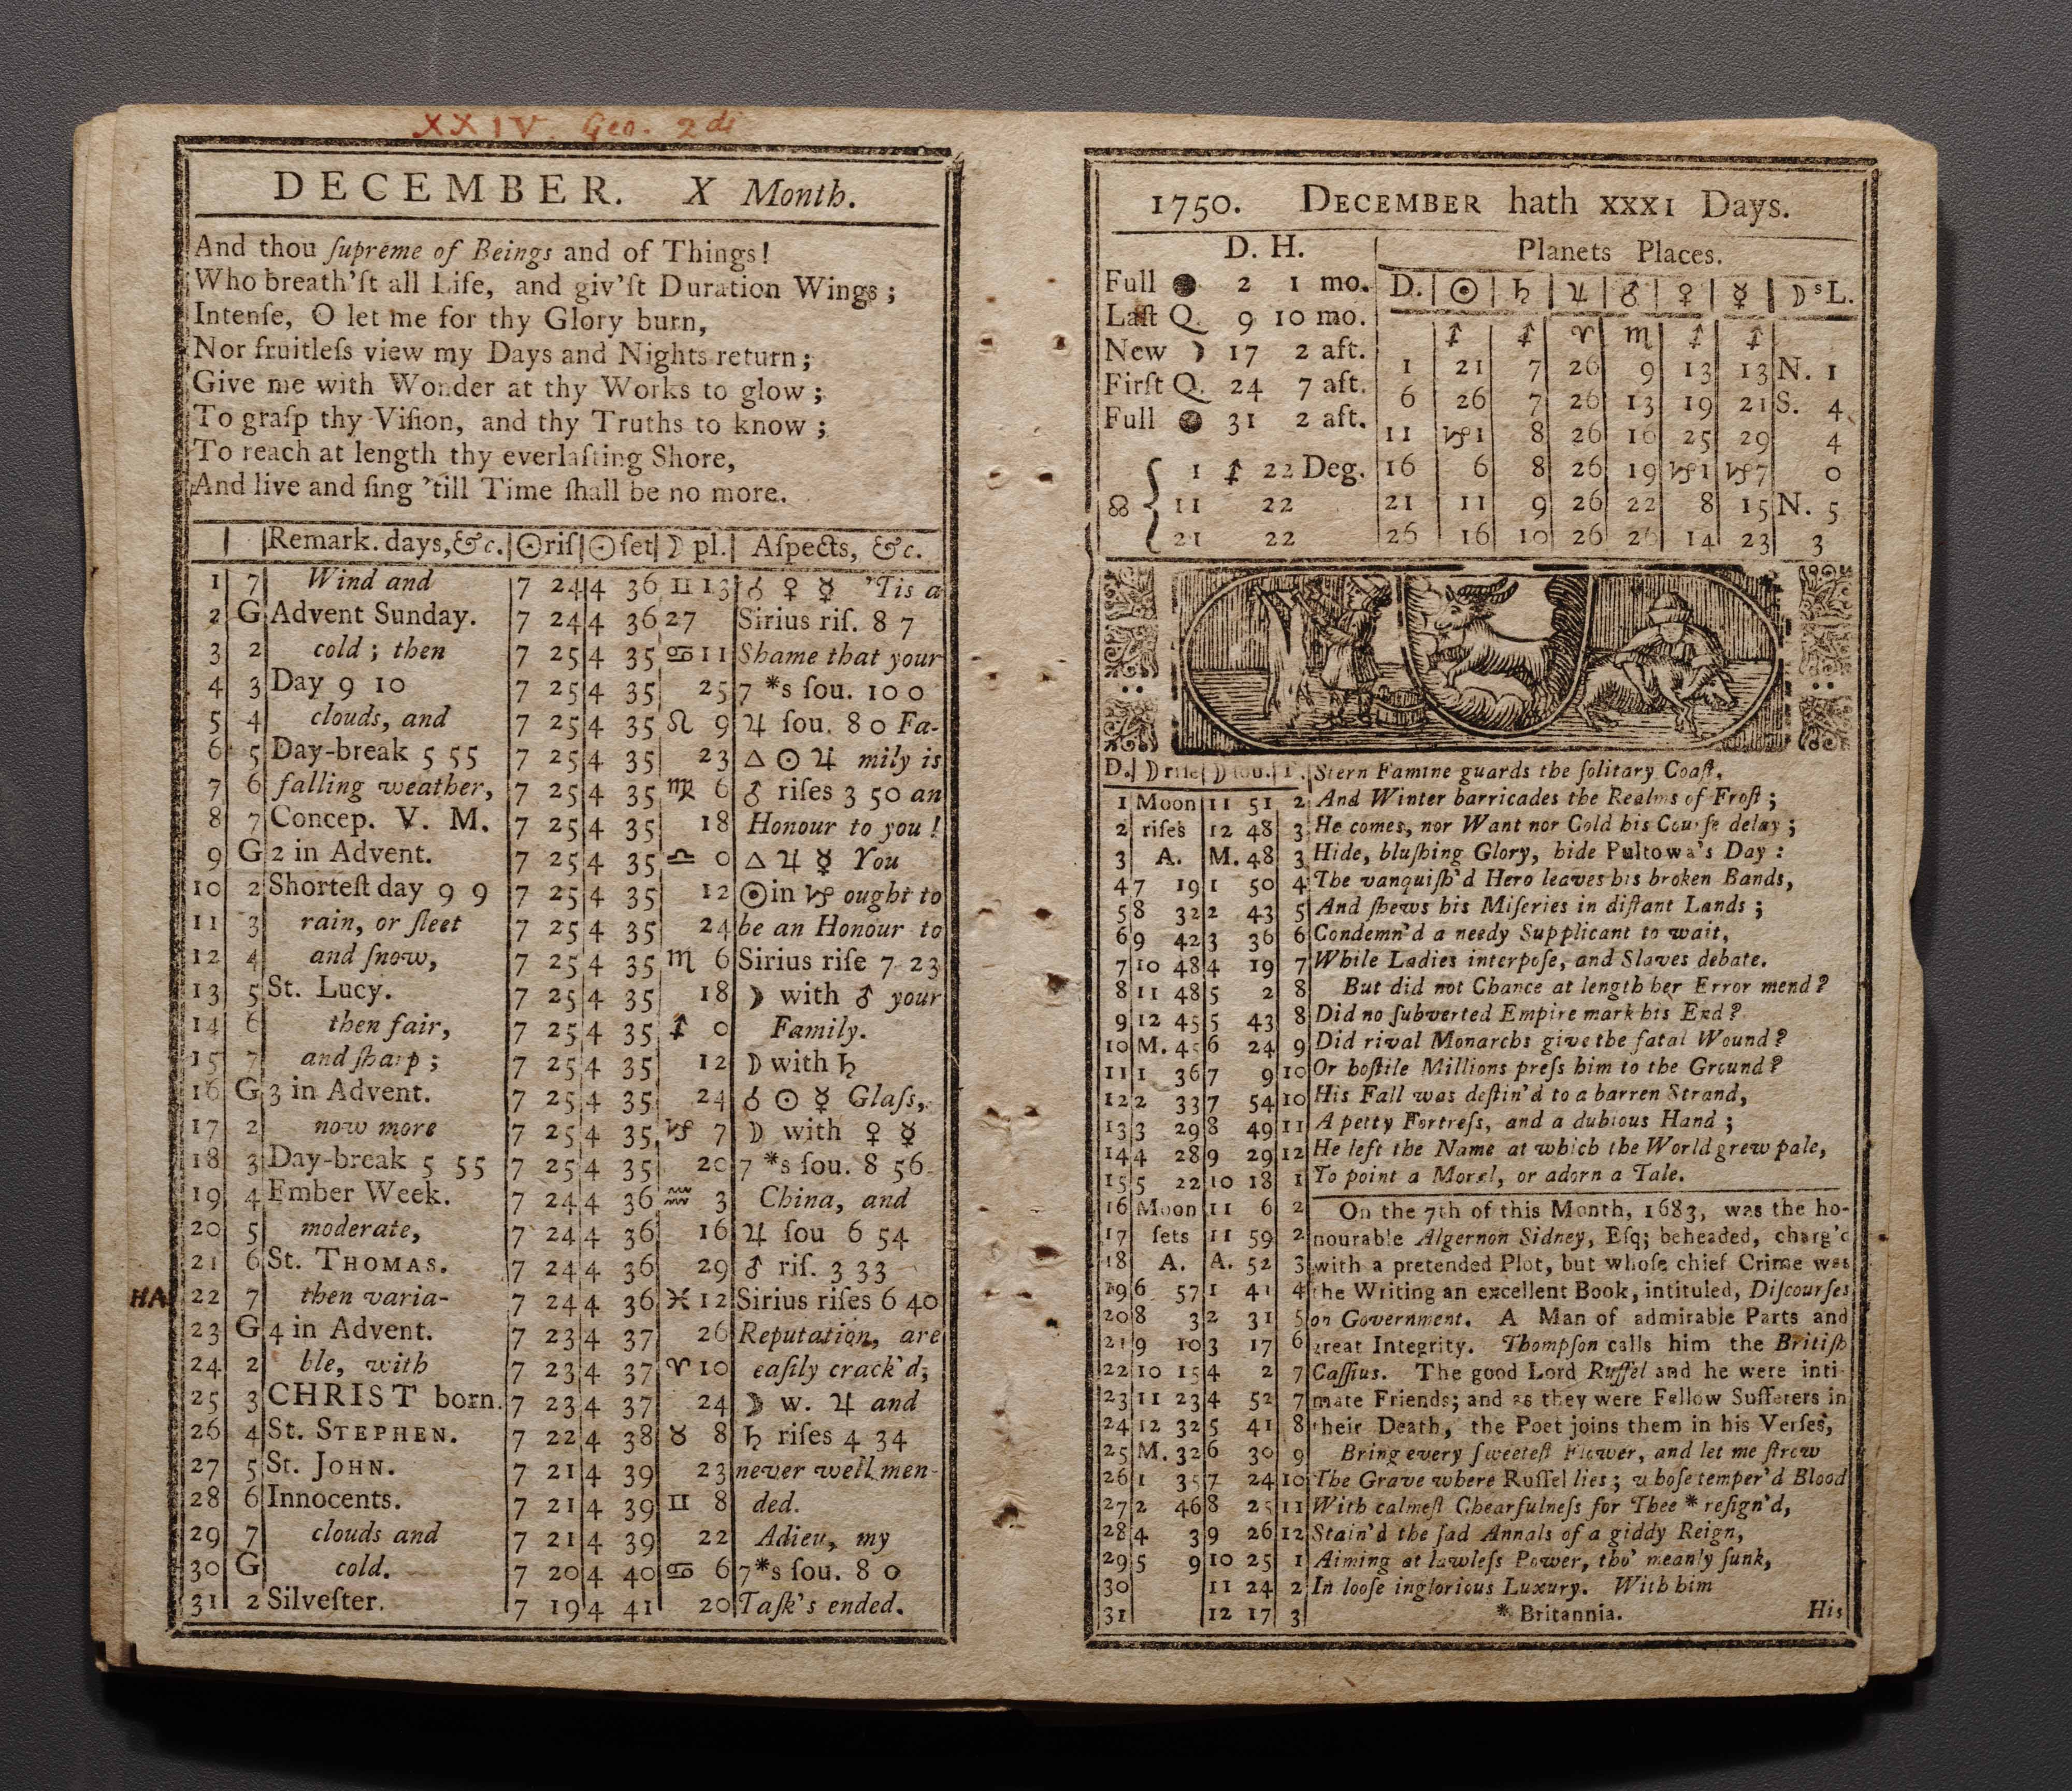 XXIV. Geo. 2di
DECEMBER. X Month.
And thou ſupreme of Beings and of Things!
Who breath'ſt all Life, and giv'ſt Duration Wings;
Intenſe, O let me for thy Glory burn,
Nor fruitleſs view my Days and Nights return;
Give me with Wonder at thy Works to glow;
To graſp thy Viſion, and thy Truths to know;
To reach at length thy everlaſting Shore,
And live and ſing 'till Time ſhall be no more.
Remark. days, &c. ☉riſ ☉ſet ☽ pl. Aſpects, &c.
1 7 Wind and 7 24 4 36 ♊ 13 ☌ ♀ ☿ 'Tis a
2 G Advent Sunday. 7 24 4 36 27 Sirius riſ. 8 7
3 2 cold; then 7 25 4 35 ♋ 11 Shame that your
4 3 Day 9 10 7 25 4 35 25 7 *s ſou. 10 0
5 4 clouds, and 7 25 4 35 ♌ 9 ♃ ſou. 8 0 Fa-
6 5 Day-break 5 55 7 25 4 35 23 △ ☉ ♃ mily is
7 6 falling weather, 7 25 4 35 ♍ 6 ♂ riſes 3 50 an
8 7 Concep. V. M. 7 25 4 35 18 Honour to you!
9 G 2 in Advent. 7 25 4 35 ♎ 0 △ ♃ ☿ You
10 2 Shorteſt day 9 9 7 25 4 35 12 ☉ in ♑ ought to
11 3 rain, or ſleet 7 25 4 35 24 be an Honour to
12 4 and ſnow, 7 25 4 35 ♏ 6 Sirius riſe 7 23
13 5 St. Lucy. 7 25 4 35 18 ☽ with ♂ your
14 6 then fair, 7 25 4 35 ♐ 0 Family.
15 7 and ſharp; 7 25 4 35 12 ☽ with ♄
16 G 3 in Advent. 7 25 4 35 24 ☌ ☉ ☿ Glaſs,
17 2 now more 7 25 4 35 ♑ 7 ☽ with ♀ ☿
18 3 Day-break 5 55 7 25 4 35 20 7 *s ſou. 8 56
19 4 Ember Week. 7 24 4 36 ♒ 3 China, and
20 5 moderate, 7 24 4 36 16 ♃ ſou 6 54
21 6 St. THOMAS. 7 24 4 36 29 ♂ riſ. 3 33
HA 22 7 then varia- 7 24 4 36 ♓ 12 Sirius riſes 6 40
23 G 4 in Advent. 7 23 4 37 26 Reputation, are
24 2 ble, with 7 23 4 37 ♈ 10 eaſily crack'd;
25 3 CHRIST born. 7 23 4 37 24 ☽ w. ♃ and
26 4 St. STEPHEN. 7 22 4 38 ♉ 8 ♄ riſes 4 34
27 5 St. JOHN. 7 21 4 39 23 never well men-
28 6 Innocents. 7 21 4 39 ♊ 8 ded.
29 7 clouds and 7 21 4 39 22 Adieu, my
30 G cold. 7 20 4 40 ♋ 6 7*s ſou. 8 0
31 2 Silveſter. 7 19 4 41 20 Taſk's ended.
1750. DECEMBER hath XXXI Days.
D. H.
Full ● 2 1 mo.
Laſt Q. 9 10 mo.
New ☽ 17 2 aft.
Firſt Q. 24 7 aft.
Full ● 31 2 aft.
☊ { 1 ♐ 22 Deg.
11 22
21 22
Planets Places.
D. ☉ ♄ ♃ ♂ ♀ ☿ ☽sL.
♐ ♐ ♈ ♏ ♐ ♐
1 21 7 26 9 13 13 N. 1
6 26 7 26 13 19 21 S. 4
11 ♑1 8 26 16 25 29 4
16 6 8 26 19 ♑1 ♑7 0
21 11 9 26 22 8 15 N. 5
26 16 10 26 26 14 23 3
D. ☽ riſe ☽ ſou. T. Stern Famine guards the ſolitary Coaſt,
1 Moon 11 51 2 And Winter barricades the Realms of Froſt;
2 riſes 12 48 3 He comes, nor Want nor Cold his Courſe delay;
3 A. M. 48 3 Hide, bluſhing Glory, hide Pultowa's Day:
4 7 19 1 50 4 The vanquiſh'd Hero leaves his broken Bands,
5 8 32 2 43 5 And ſhews his Miſeries in diſtant Lands;
6 9 42 3 36 6 Condemn'd a needy Supplicant to wait,
7 10 48 4 19 7 While Ladies interpoſe, and Slaves debate.
8 11 48 5 2 8 But did not Chance at length her Error mend?
9 12 45 5 43 8 Did no ſubverted Empire mark his End?
10 M. 45 6 24 9 Did rival Monarchs give the fatal Wound?
11 1 36 7 9 10 Or hoſtile Millions preſs him to the Ground?
12 2 33 7 54 10 His Fall was deſtin'd to a barren Strand,
13 3 29 8 49 11 A petty Fortreſs, and a dubious Hand;
14 4 28 9 29 12 He left the Name at which the World grew pale,
15 5 22 10 18 1 To point a Moral, or adorn a Tale.
16 Moon 11 6 2 On the 7th of this Month, 1683, was the ho-
17 ſets 11 59 2 nourable Algernon Sidney, Eſq; beheaded, charg'd
18 A. A. 52 3 with a pretended Plot, but whoſe chief Crime was
19 6 57 1 41 4 the Writing an excellent Book, intituled, Diſcourſes
20 8 3 2 31 5 on Government. A Man of admirable Parts and
21 9 10 3 17 6 great Integrity. Thompſon calls him the Britiſh
22 10 15 4 2 7 Caſſius. The good Lord Ruſſel and he were inti-
23 11 23 4 52 7 mate Friends; and as they were Fellow Sufferers in
24 12 32 5 41 8 their Death, the Poet joins them in his Verſes,
25 M. 32 6 30 9 Bring every ſweeteſt Flower, and let me ſtrow
26 1 35 7 24 10 The Grave where Ruſſel lies; whoſe temper'd Blood
27 2 46 8 25 11 With calmeſt Chearfulneſs for Thee * reſign'd,
28 4 3 9 26 12 Stain'd the ſad Annals of a giddy Reign,
29 5 9 10 25 1 Aiming at lawleſs Power, tho' meanly ſunk,
30 11 24 2 In looſe inglorious Luxury. With him
31 12 17 3 * Britannia. His